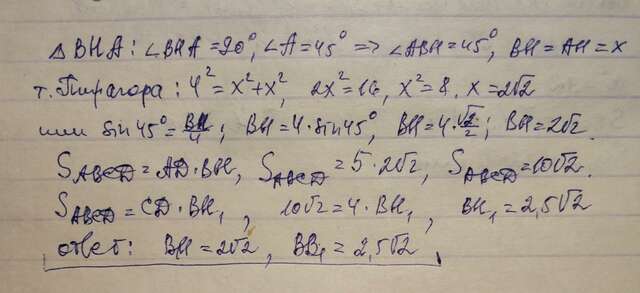 △ BHA: ∠BHA = 90°, ∠A = 45° => ∠ABH = 45°, BH = AH = x
т. Пифагора: 4² = x² + x², 2x² = 16, x² = 8, x = 2√2
или sin 45° = BH/4; BH = 4·sin 45°, BH = 4·√2/2; BH = 2√2.
S_ABCD = AD·BH, S_ABCD = 5·2√2, S_ABCD = 10√2.
S_ABCD = CD·BH₁, 10√2 = 4·BH₁, BH₁ = 2,5√2
ответ: BH = 2√2, BB₁ = 2,5√2.